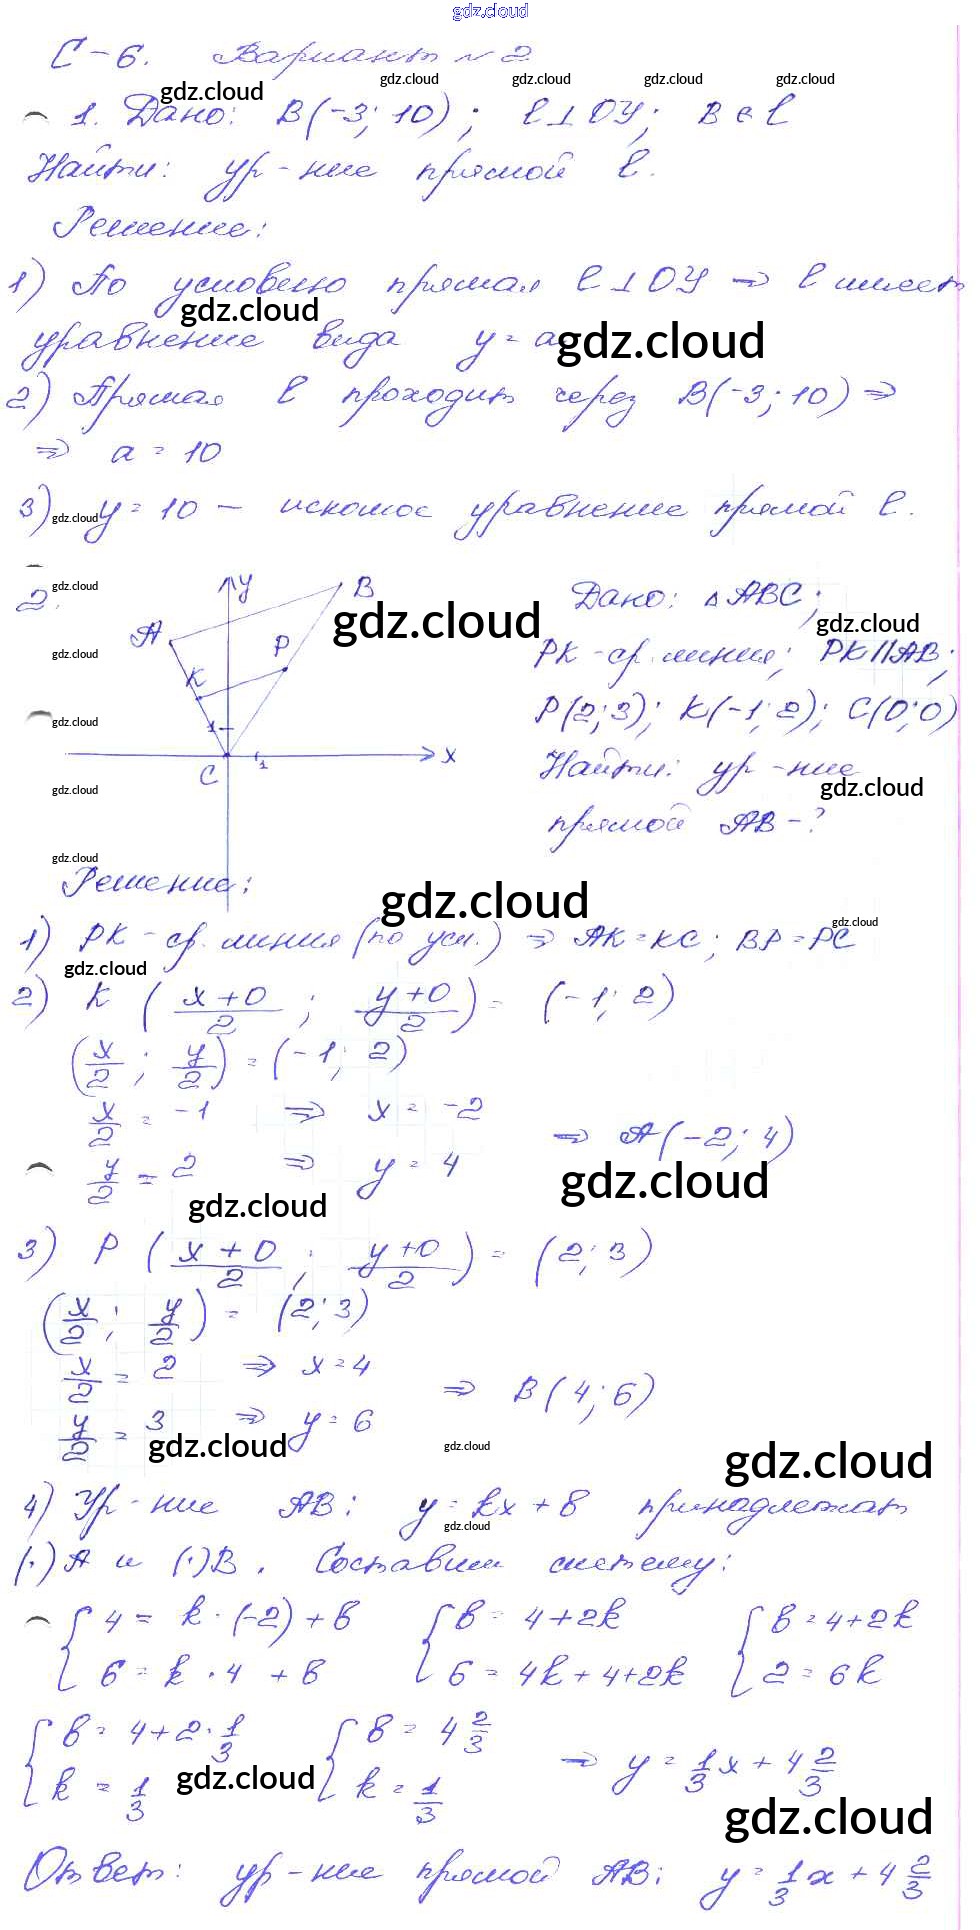 gdz.cloud
С-6. Вариант №2
gdz.cloud gdz.cloud gdz.cloud gdz.cloud gdz.cloud
1. Дано: B(-3; 10); l⊥OY; B∈l
Найти: ур-ние прямой l.
Решение:
1) По условию прямая l⊥OY ⇒ l имеет
gdz.cloud
уравнение вида y = a
gdz.cloud
2) Прямая l проходит через B(-3; 10) ⇒
⇒ a = 10
3) y = 10 — искомое уравнение прямой l.
gdz.cloud
2.
gdz.cloud
y B A P K 1 C 1 x
gdz.cloud
gdz.cloud
gdz.cloud
gdz.cloud
gdz.cloud
Дано: △ABC;
gdz.cloud
PK - ср. линия; PK∥AB;
P(2; 3); K(-1; 2); C(0; 0)
Найти: ур-ние
gdz.cloud
прямой AB - ?
Решение:
gdz.cloud
gdz.cloud
1) PK - ср. линия (по усл.) ⇒ AK = KC; BP = PC
gdz.cloud
2) K ((x+0)/2; (y+0)/2) = (-1; 2)
(x/2; y/2) = (-1; 2)
x/2 = -1 ⇒ x = -2
⇒ A(-2; 4)
y/2 = 2 ⇒ y = 4
gdz.cloud
gdz.cloud
3) P ((x+0)/2; (y+0)/2) = (2; 3)
(x/2; y/2) = (2; 3)
x/2 = 2 ⇒ x = 4
⇒ B(4; 6)
y/2 = 3 ⇒ y = 6
gdz.cloud gdz.cloud gdz.cloud
4) Ур-ние AB: y = kx + b принадлежат
gdz.cloud
(·)A и (·)B. Составим систему:
{4 = k·(-2) + b {b = 4+2k {b = 4+2k
{6 = k·4 + b {6 = 4k+4+2k {2 = 6k
{b = 4+2·1/3 {b = 4 2/3
⇒ y = 1/3x + 4 2/3
{k = 1/3 {k = 1/3
gdz.cloud gdz.cloud
Ответ: ур-ние прямой AB: y = 1/3x + 4 2/3